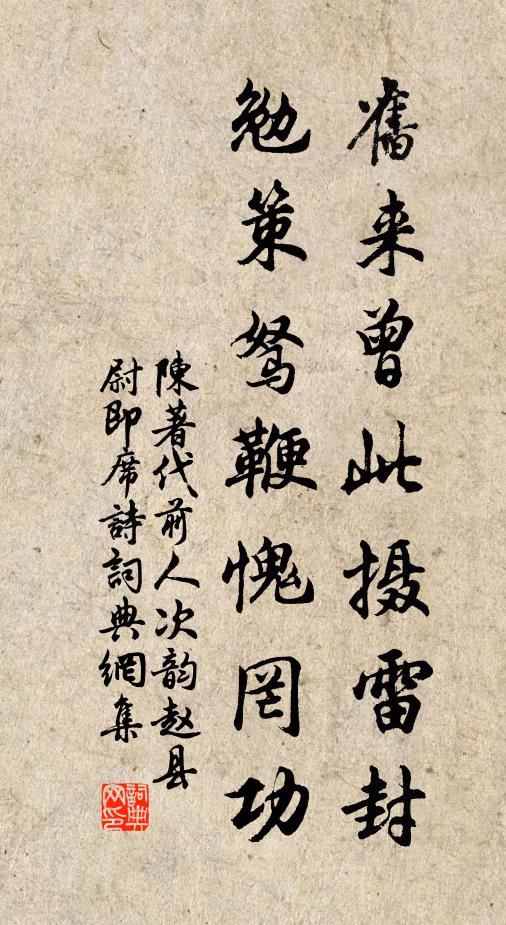 舊来曾此摄雷封
勉策駑鞭愧罔功
陳著代前人次韵赵县
尉即席詩詞典網集
詞典网印